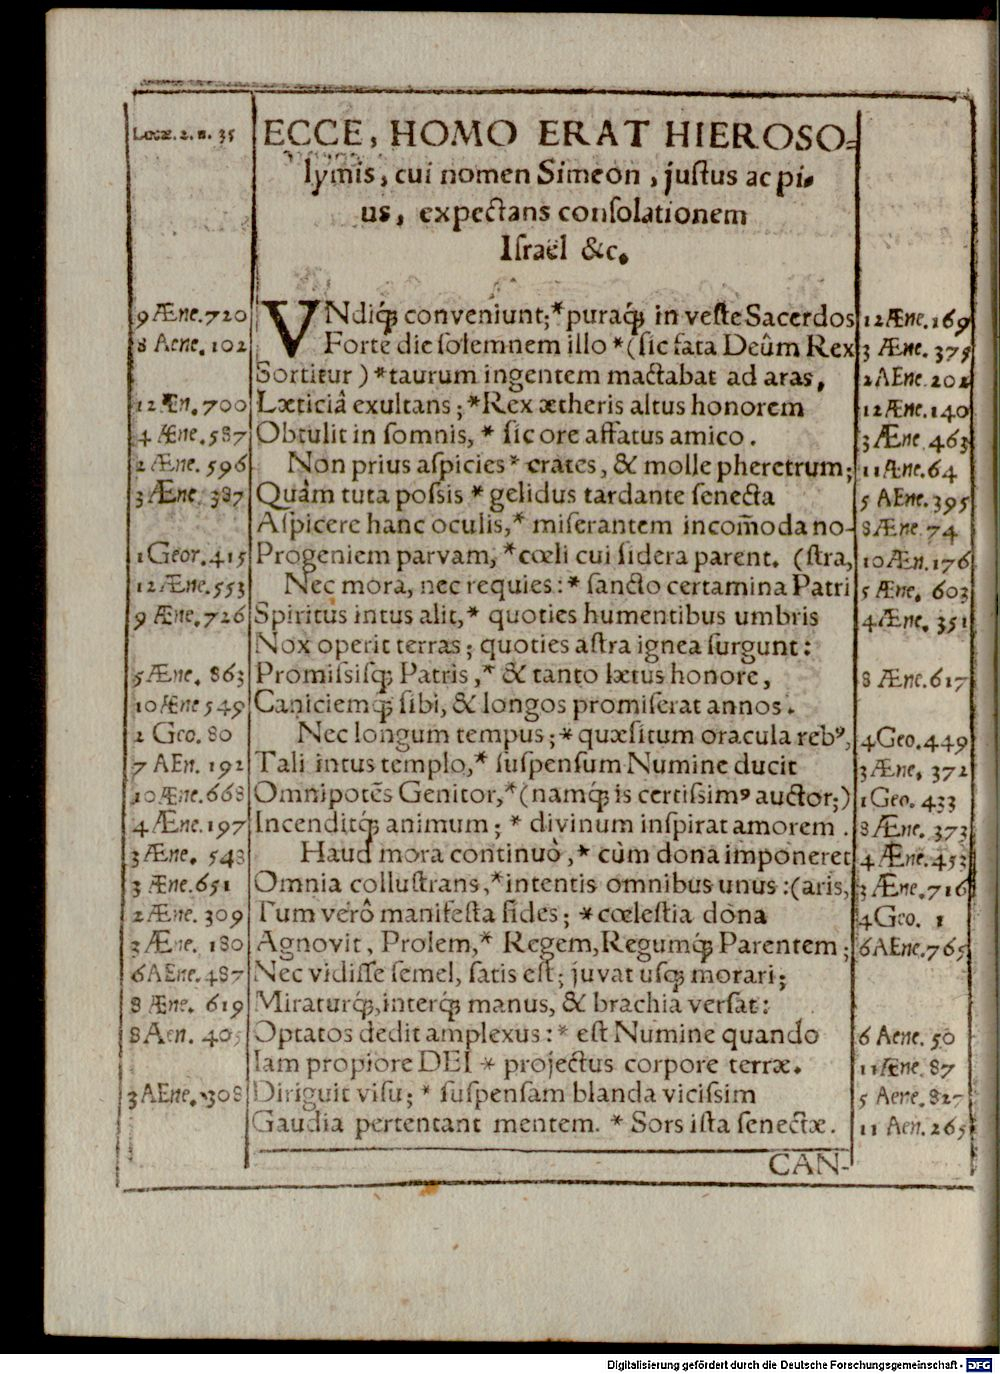 Lucæ. 2. n. 35 ECCE, HOMO ERAT HIEROSO-
lymis, cui nomen Simeon, juſtus ac pi-
us, expectans conſolationem
Iſraël &c.
9 Æne. 720 VNdiq́; conveniunt;*puraq́; in veſte Sacerdos 12 Æne. 169
8 Aene. 102 Forte die ſolemnem illo *(ſic fata Deûm Rex 3 Æne. 375
Sortitur) *taurum ingentem mactabat ad aras, 2 AEne. 202
12 Æn. 700 Lætitiâ exultans; *Rex ætheris altus honorem 12 Æne. 140
4 Æne. 587 Obtulit in ſomnis, * ſic ore affatus amico. 3 Æne. 463
2 Æne. 596 Non prius aſpicies * crates, & molle pheretrum; 11 Æne. 64
3 Æne. 387 Quâm tuta poſsis * gelidus tardante ſenecta 5 AEne. 395
Aſpicere hanc oculis,* miſerantem incom̃oda no- 8 Æne. 74
1 Geor. 415 Progeniem parvam, *cœli cui ſidera parent. (ſtra, 10 Æn. 176
12 Æne. 553 Nec mora, nec requies: * ſancto certamina Patri 5 Æne. 603
9 Æne. 726 Spiritus intus alit,* quoties humentibus umbris 4 Æne. 351
Nox operit terras; quoties aſtra ignea ſurgunt:
5 Æne. 863 Promiſsiſq; Patris,* & tanto lætus honore, 8 Æne. 617
10 Æne 549 Caniciemq́; ſibi, & longos promiſerat annos.
2 Geo. 80 Nec longum tempus; * quæſitum oracula rebꝰ, 4 Geo. 449
7 AEn. 192 Tali intus templo,* ſuſpenſum Numine ducit 3 Æne. 372
10 Æne. 668 Omnipotẽs Genitor,*(namq́; is certiſsimꝰ auctor;) 1 Geo. 433
4 Æne. 197 Incenditq́; animum; * divinum inſpirat amorem. 8 Æne. 373
3 Æne. 548 Haud mora continuò,* cùm dona imponeret 4 Æne. 453
3 Æne. 651 Omnia colluſtrans,*intentis omnibus unus:(aris, 3 Æne. 716
2 Æne. 309 Tum verô manifeſta fides; *cœleſtia dona 4 Geo. 1
3 Æne. 180 Agnovit, Prolem,* Regem, Regumq́; Parentem; 6 AEne. 765
6 AEne. 487 Nec vidiſſe ſemel, ſatis eſt; juvat uſq; morari;
8 Æne. 619 Miraturq́;, interq́; manus, & brachia verſat:
8 Aen. 405 Optatos dedit amplexus: * eſt Numine quando 6 Aene. 50
Iam propiore DEI * projectus corpore terræ. 11 Æne. 87
3 AEne. 308 Diriguit viſu; * ſuſpenſam blanda viciſsim 5 Aene. 827
Gaudia pertentant mentem. * Sors iſta ſenectæ. 11 Aen. 265
CAN-
Digitalisierung gefördert durch die Deutsche Forschungsgemeinschaft - DFG